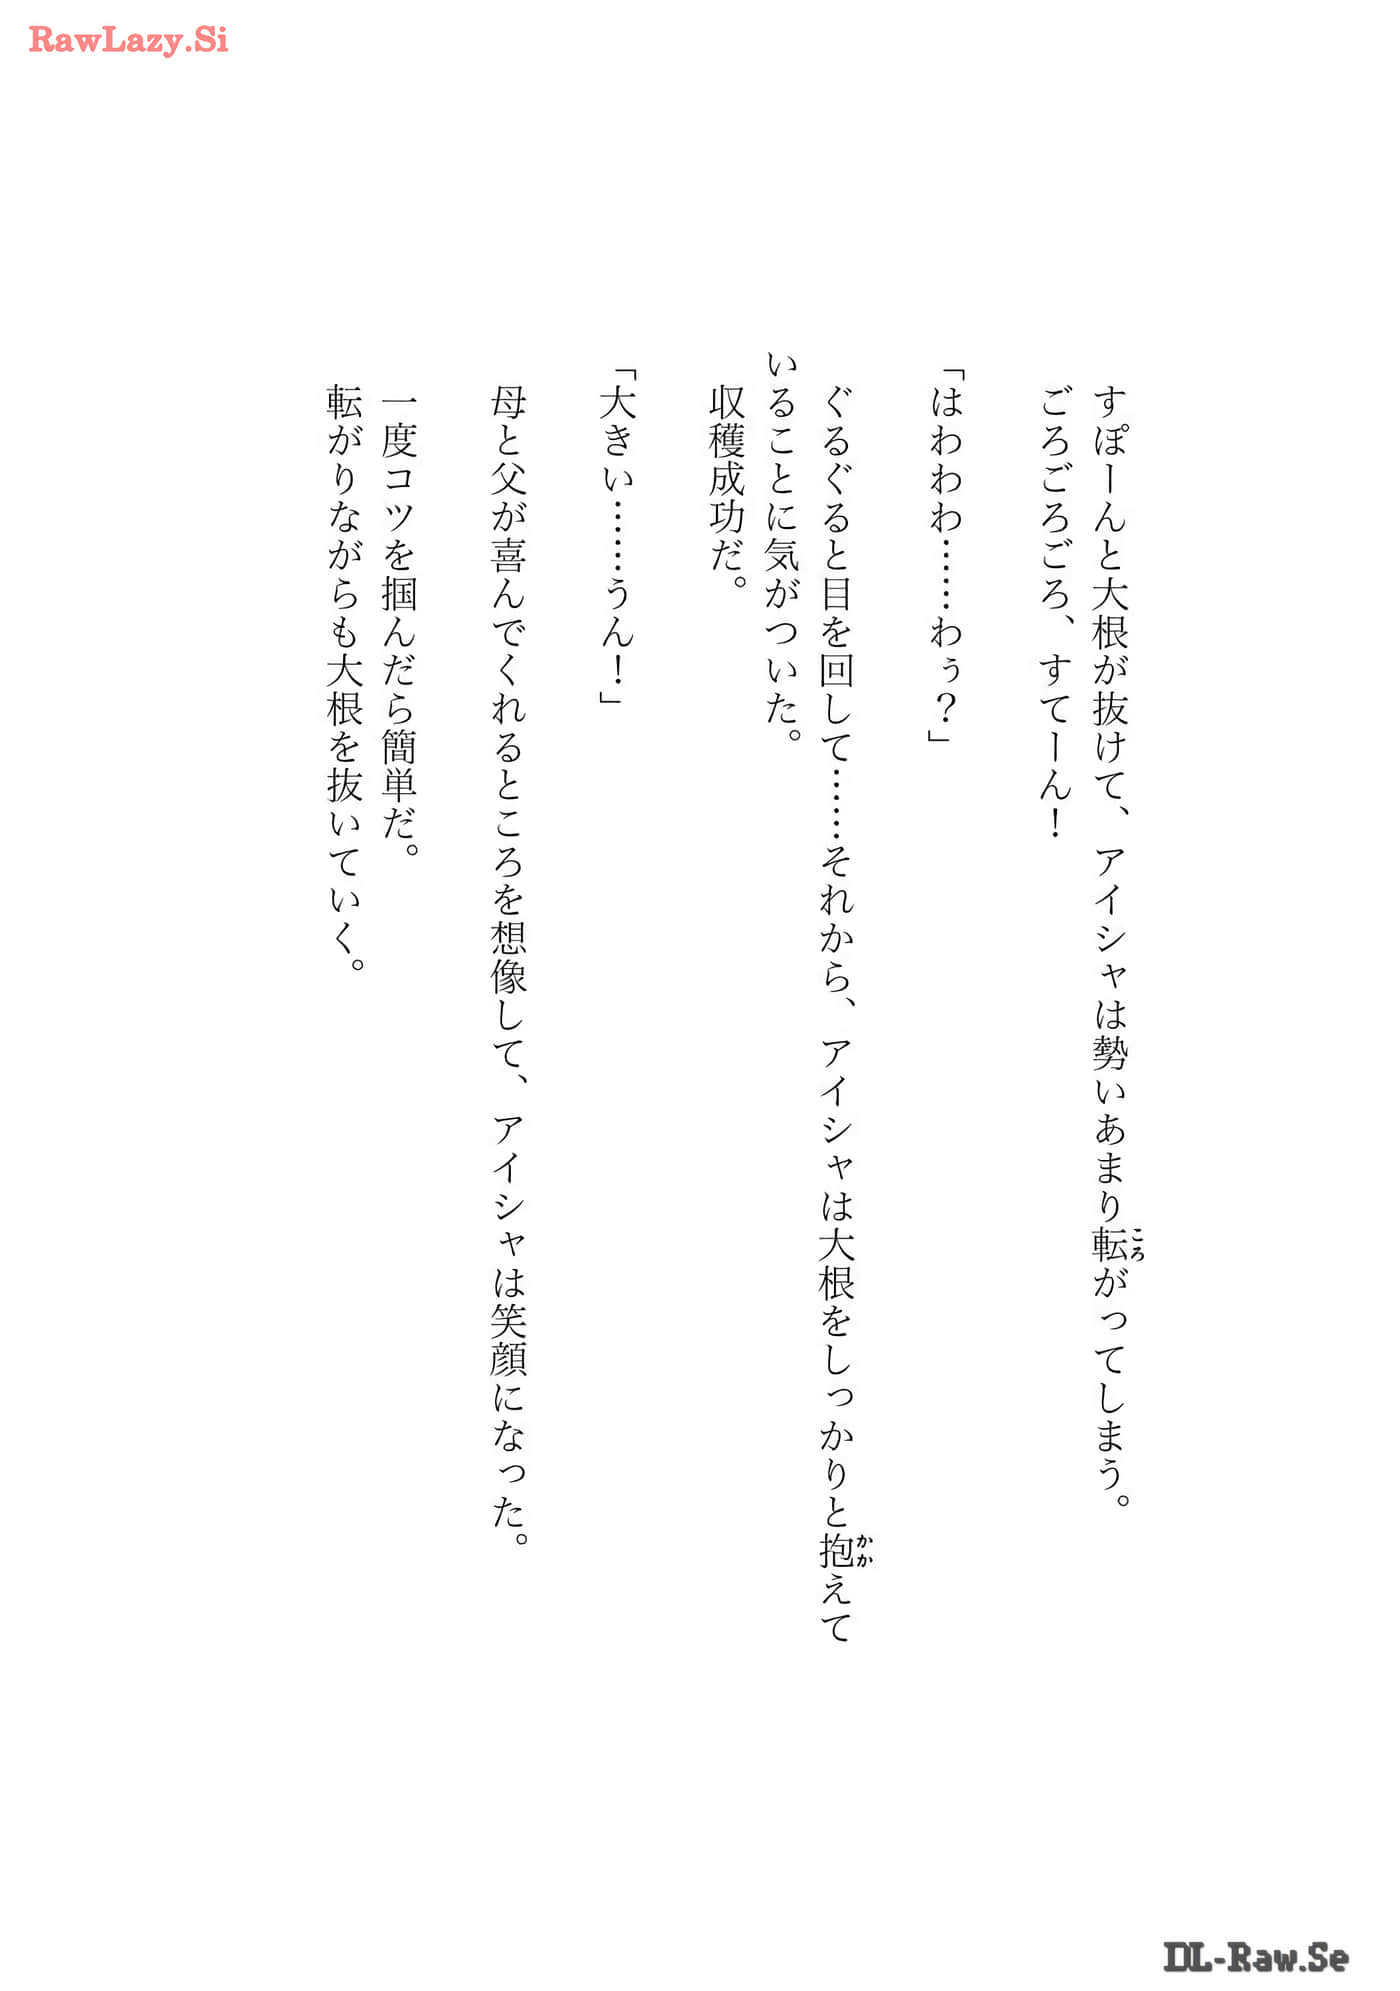 RawLazy.Si
すぽーんと大根が抜けて、アイシャは勢いあまり転がってしまう。
ころ
ごろごろごろ、すてーん！
「はわわわ……わぅ？」
ぐるぐると目を回して……それから、アイシャは大根をしっかりと抱えて
かか
いることに気がついた。
収穫成功だ。
「大きい……うん！」
母と父が喜んでくれるところを想像して、アイシャは笑顔になった。
一度コツを掴んだら簡単だ。
転がりながらも大根を抜いていく。
DL-Raw.Se